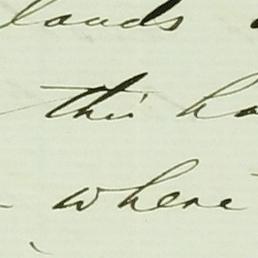 lands
this ha
where